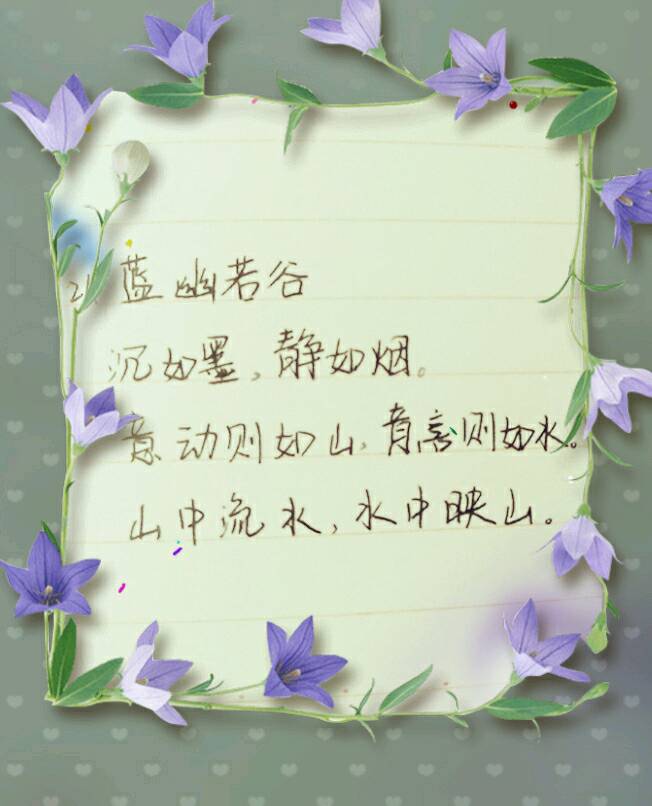 蓝幽若谷
沉如墨，静如烟。
意动则如山，意离则如水。
山中流水，水中映山。